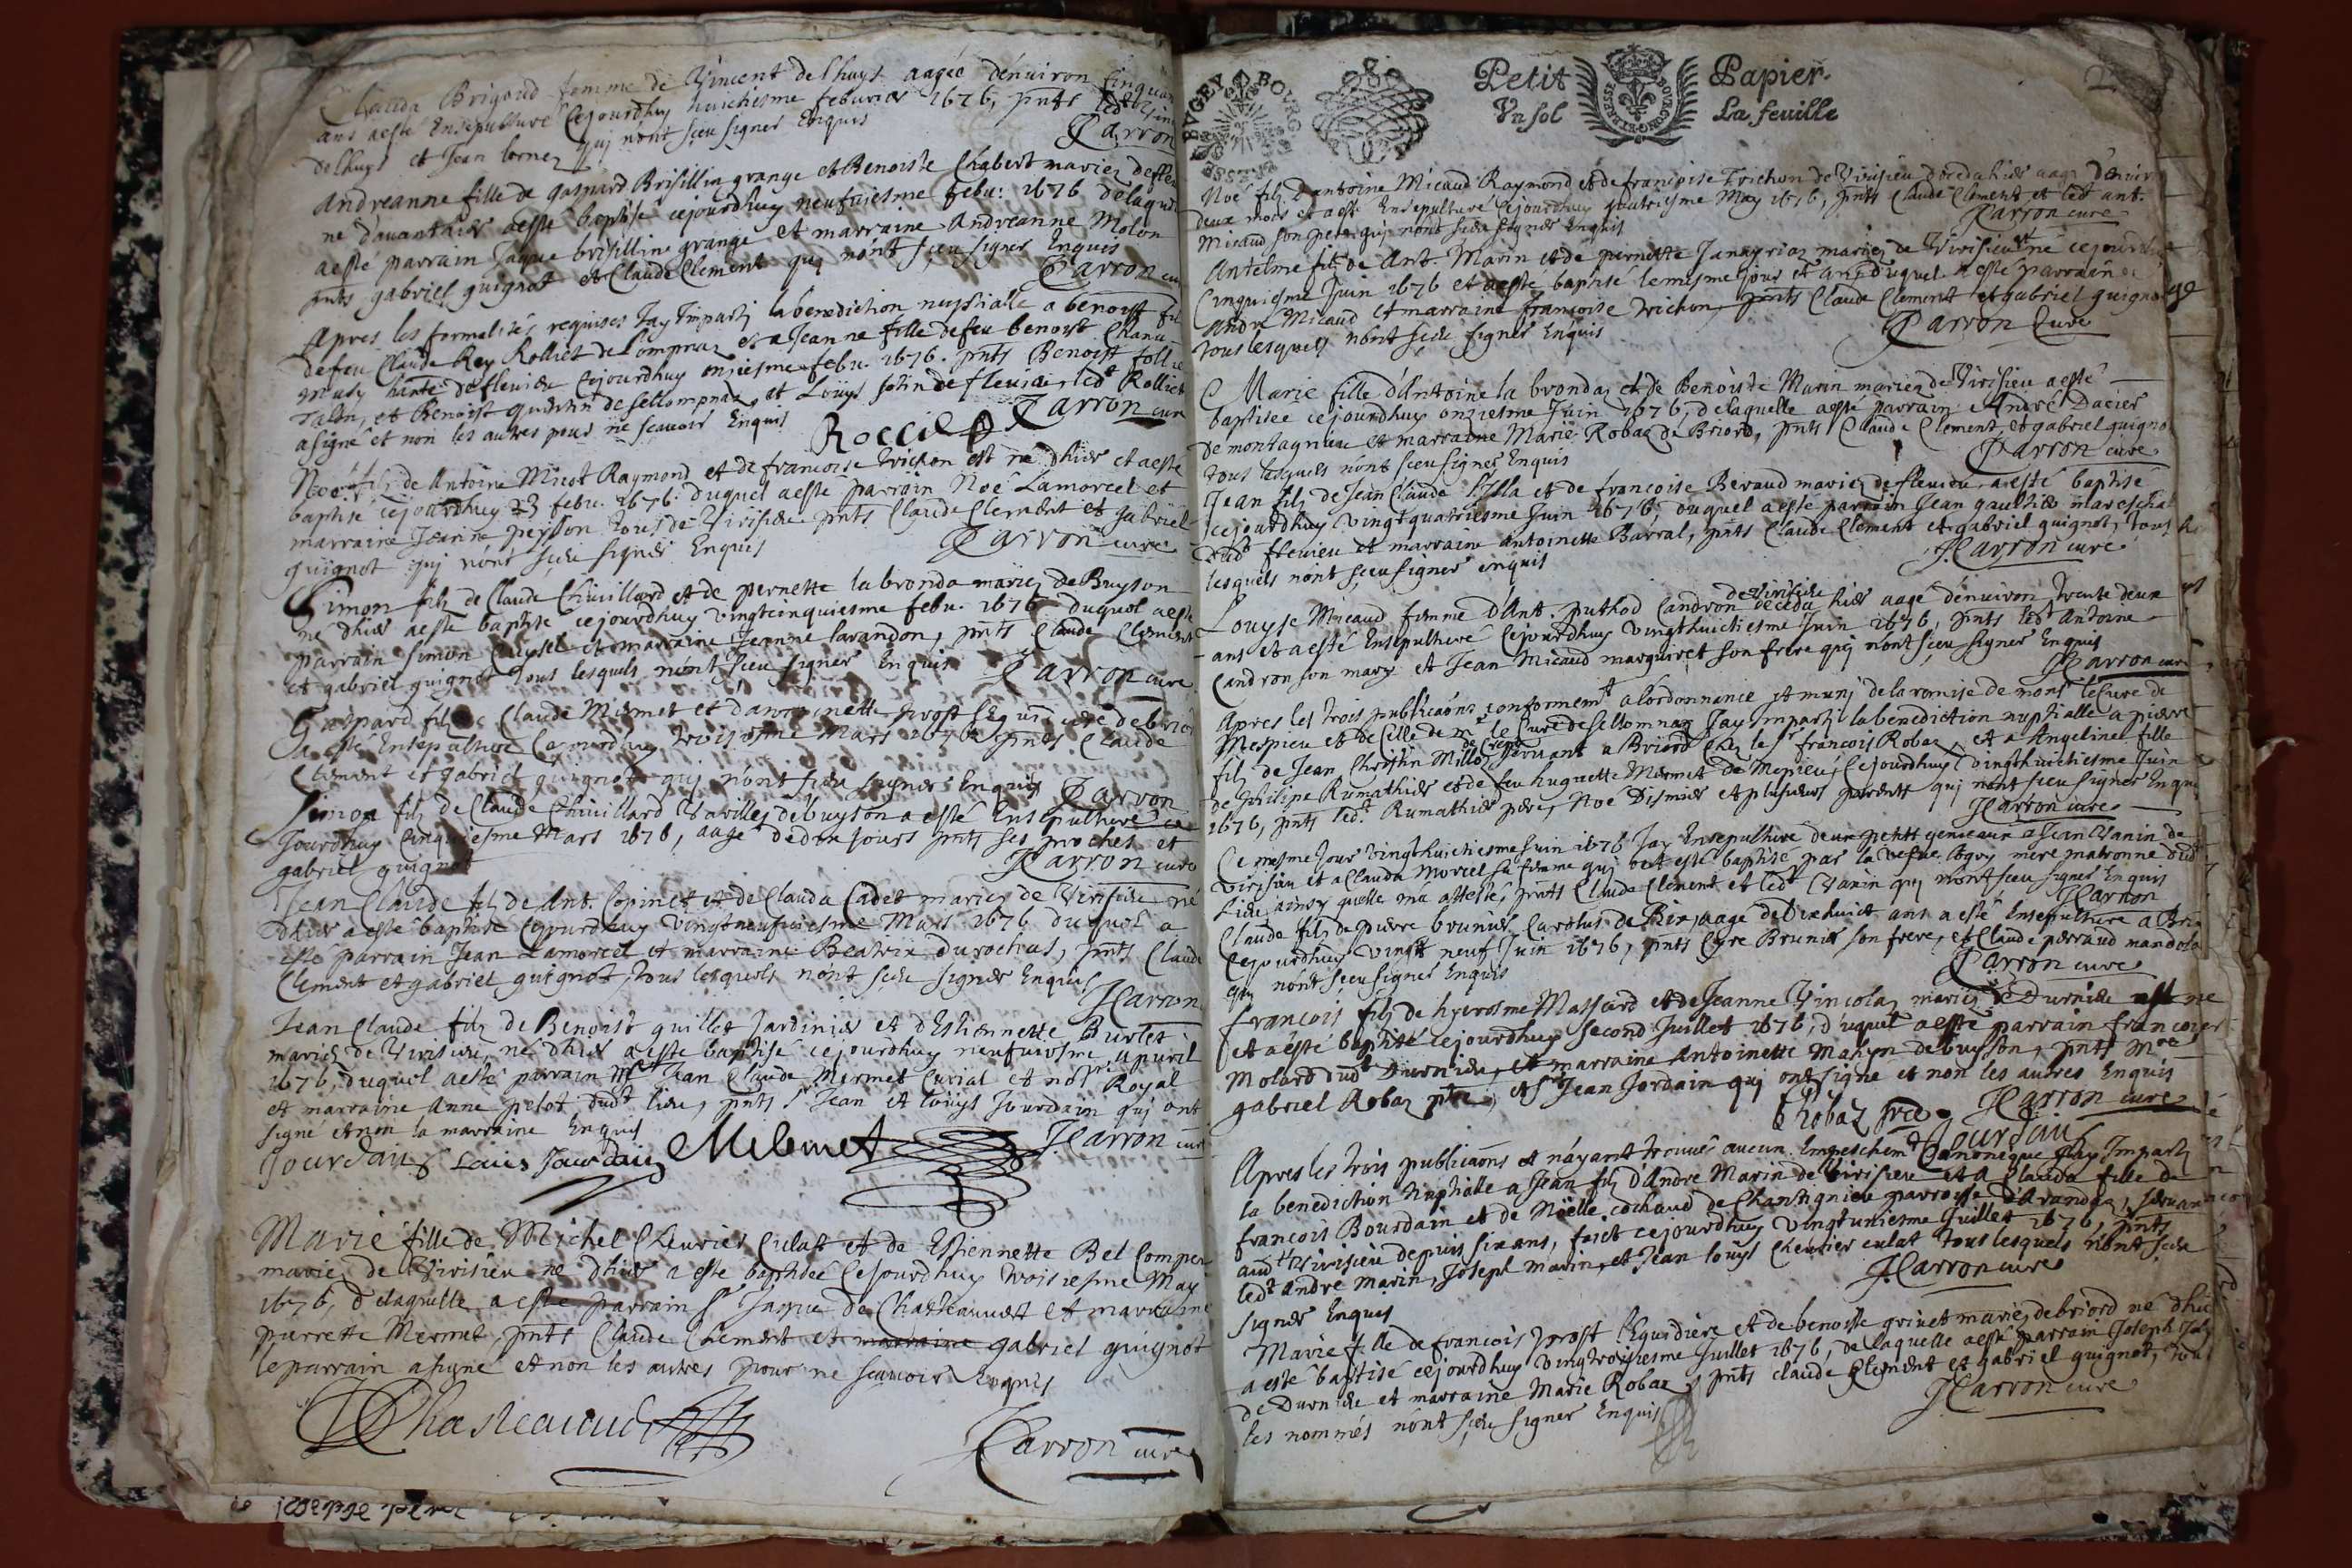 Clauda Brigoud femme de Vincent delhuys aagée d'enuiron Cinquan
ans a esté Ensepulturé Cejourdhuy huictiesme feburier 1676, pnts led Vin
delhuys et Jean qui n'ont sçeu signer Enquis
Carron
Andreanne fille de gaspard Brisillin grange et Benoiste Chabert mariez de
ne dauantaier a esté baptisé cejourdhuy neufuiesme febu: 1676 delaqu
a esté parrain Jaque brisillin grange et marraine Andreanne Molon
pnts gabriel guignot et Claude Clement qui n'ont sçeu signer Enquis
Carron cur
Apres les formalités requises Jay Imparti la benediction nuptialle a benoist fil
de feu Claude Rey Rolliet de Lompnaz et a Jeanne fille de feu benoist Chanu
de fleurieu Cejourdhuy onziesme febu. 1676. pnts Benoist
et Benoist de sellompnaz, et Louys de fleurieu, led Rolliet
a signé et non les autres pour ne scauoir Enquis
Carron cure
Noé filz de Antoine Micot Raymond et de francoise trichon est né dhier et a esté
baptisé cejourdhuy 23 febu. 1676. duquel a esté parrain Noé Lamorcel et
marraine Jeanne peysson tous de Virisieu pnts Claude Clement et gabriel
guignot qui n'ont sçeu signer Enquis
Carron cure
Simon filz de Claude Chiuillard et de pernette labronda mariez de Buyson
né dhier a esté baptisé cejourdhuy vingtcinquiesme febu. 1676 duquel a esté
parrain Simon Cuysel et marraine Jeanne sarandon, pnts Claude Clement
et gabriel guignot tous lesquels n'ont sçeu signer Enquis Carron cure
Gaspard filz de Claude Mermet et d'anthoinette prost de brior
a esté Ensepulturé Cejourdhuy troisiesme Mars 1676 pnts Claude
Clement et gabriel guignot qui n'ont sçeu signer Enquis Carron
Simon filz de Claude Chiuillard de buyson a esté Ensepulturé ce
Jourdhuy Cinquiesme Mars 1676, aagé de dix jours pnts ses proches et
gabriel guignot
Carron cure
Jean Claude filz de Ant. Copinet et de Clauda Cadet mariez de Virisieu né
dhier a esté baptisé Cejourdhuy vingtneufuiesme Mars 1676 duquel a
esté parrain Jean Lamorcel et marraine Beatrix durochas, pnts Claude
Clement et gabriel guignot, tous lesquels n'ont sçeu signer Enquis
Carron
Jean Claude filz de Benoist guillet Jardinier et d'Estiennette Burlet
mariez de Virisieu, né dhier a esté baptisé cejourdhuy neufuiesme apuril
1676, duquel a esté parrain Mre Jean Claude Mermet Curial et notre Royal
et marraine Anne pelot dudt lieu, pnts sr Jean et Louys Jourdain qui ont
signé et non la marraine Enquis
Carron cure
Jourdain Louis Jourdain Mermet
Marie fille de Michel Cheurier Culat et de Estiennette Bel Comper
mariez de Virisieu né dhier a esté baptisée Cejourdhuy troisiesme May
1676, delaquelle a esté parrain sr Jaque de Chasteauuert et marraine
pierrette Mermet, pnts Claude Clement et marraine gabriel guignot
le parrain a signé et non les autres pour ne scauoir Enquis
Carron cure
BVGEY BOVRG BRESSE
Petit Papier.
Vn sol La feuille
2
Noé filz d'antoine Micaud Raymond et de francoise trichon de Virisieu deceda hier aagé d'enuir
deux mois et a esté Ensepulturé Cejourdhuy quatriesme May 1676, pnts Claude Clement et led ant.
Micaud son pere qui n'ont sçeu signer Enquis
Carron cure
Antelme filz de Ant. Marin et de pernette Janeyriaz mariez de Virisieu né cejourdhuy
Cinquiesme Juin 1676 et a esté baptisé le mesme jour et an duquel a esté parrain
André Micaud et marraine francoise trichon, pnts Claude Clement et gabriel guignot
tous lesquels n'ont sçeu signer Enquis
Carron Cure
Marie fille d'Antoine labrondaz et de Benoiste Marin mariez de Virisieu a esté
baptisée cejourdhuy onziesme Juin 1676, delaquelle a esté parrain André Dacier
de montagnieu et marraine Marie Robaz de Briord, pnts Claude Clement, et gabriel guigno
tous lesquels n'ont sçeu signer Enquis
Carron cure
Jean filz de Jean Claude et de francoise Beraud mariez de fleurieu a esté baptisé
cejourdhuy vingtquatriesme Juin 1676, duquel a esté parrain Jean gaulthier mareschal
dudt fleurieu et marraine Antoinette Barral, pnts Claude Clement et gabriel guignot, tous
lesquels n'ont sçeu signer enquis
Carron cure
de Virisieu
Louyse Micaud femme d'Ant. puthod Candron deceda hier aagé d'enuiron trente deux
ans et a esté Ensepulturé Cejourdhuy vingthuictiesme Juin 1676, pnts led Antoine
Candron son mary et Jean Micaud marquiret son frere qui n'ont sçeu signer Enquis
Carron cure
Apres les trois publicaons conformemt a l'ordonnance et muni de la remise de monsr le Cure de
Mespieu et de celle de mr le Cure de sellompnaz Jay Imparti la benediction nuptialle a pierre
filz de Jean Christin Millo seruant a Briord Chez le sr francois Robaz, et a Angeline fille
de philipe Rumathier et de feu huguette Mermet de Mepieu, Cejourdhuy vingthuictiesme Juin
1676, pnts led. Rumathier pere, Noé Dismier et plusieurs parents qui n'ont sçeu signer Enqui
Carron cure
Ce mesme Jour vingthuictiesme Juin 1676 Jay Ensepulturé deux petits gemeaux a Jean Vanin de
Virisieu et a Clauda Morcel sa femme qui ont esté baptisé par la vefue mere matronne dud
Lieu ainsy quelle m'a attesté, pnts Claude Clement et led Vanin qui n'ont sçeu signer Enquis
Carron
Claude filz de pierre brunier Carolus de Bix, aagé de dixhuict ans a esté Ensepulturé a Bri
Cejourdhuy vingt neuf Juin 1676, pnts Brunier son frere, et Claude perraud
qui n'ont sçeu signer Enquis
Carron cure
francois filz de hyerosme Massard et de Jeanne Vincolaz mariez de Durnieu est né
et a esté baptisé cejourdhuy second Juillet 1676, duquel a esté parrain francois
Molard dudt Durnieu, et marraine Antoinette Mahyn de buysson, pnts Mre
gabriel Robaz ptre, et sr Jean Jordain qui ont signé et non les autres Enquis
Robaz Carron cure
Jourdain
Apres les trois publicaons et n'ayant trouué aucun Empeschemt Canonique Jay Imparti
la benediction Nuptialle a Jean filz d'Andre Marin de Virisieu et a Clauda fille de
francois Bourdain et de Noëlle cochaud de Chantignieu parroisse d'Arandaz, seruan
audt Virisieu depuis six ans, faict cejourdhuy vingtuniesme Juillet 1676, pnts
led andre marin, Joseph marin, et Jean Louys Cheurier culat tous lesquels n'ont sçeu
signer Enquis
Carron cure
Marie fille de francois prost l'Egurdiere et de benoiste griuet mariez de briord né dhie
a esté baptisé cejourdhuy vingtroisiesme Juillet 1676, delaquelle a esté parrain Joseph
de Durnieu et marraine Marie Robaz, pnts claude Clement et gabriel guignot, tou
les nommés n'ont sçeu signer Enquis
Carron cure